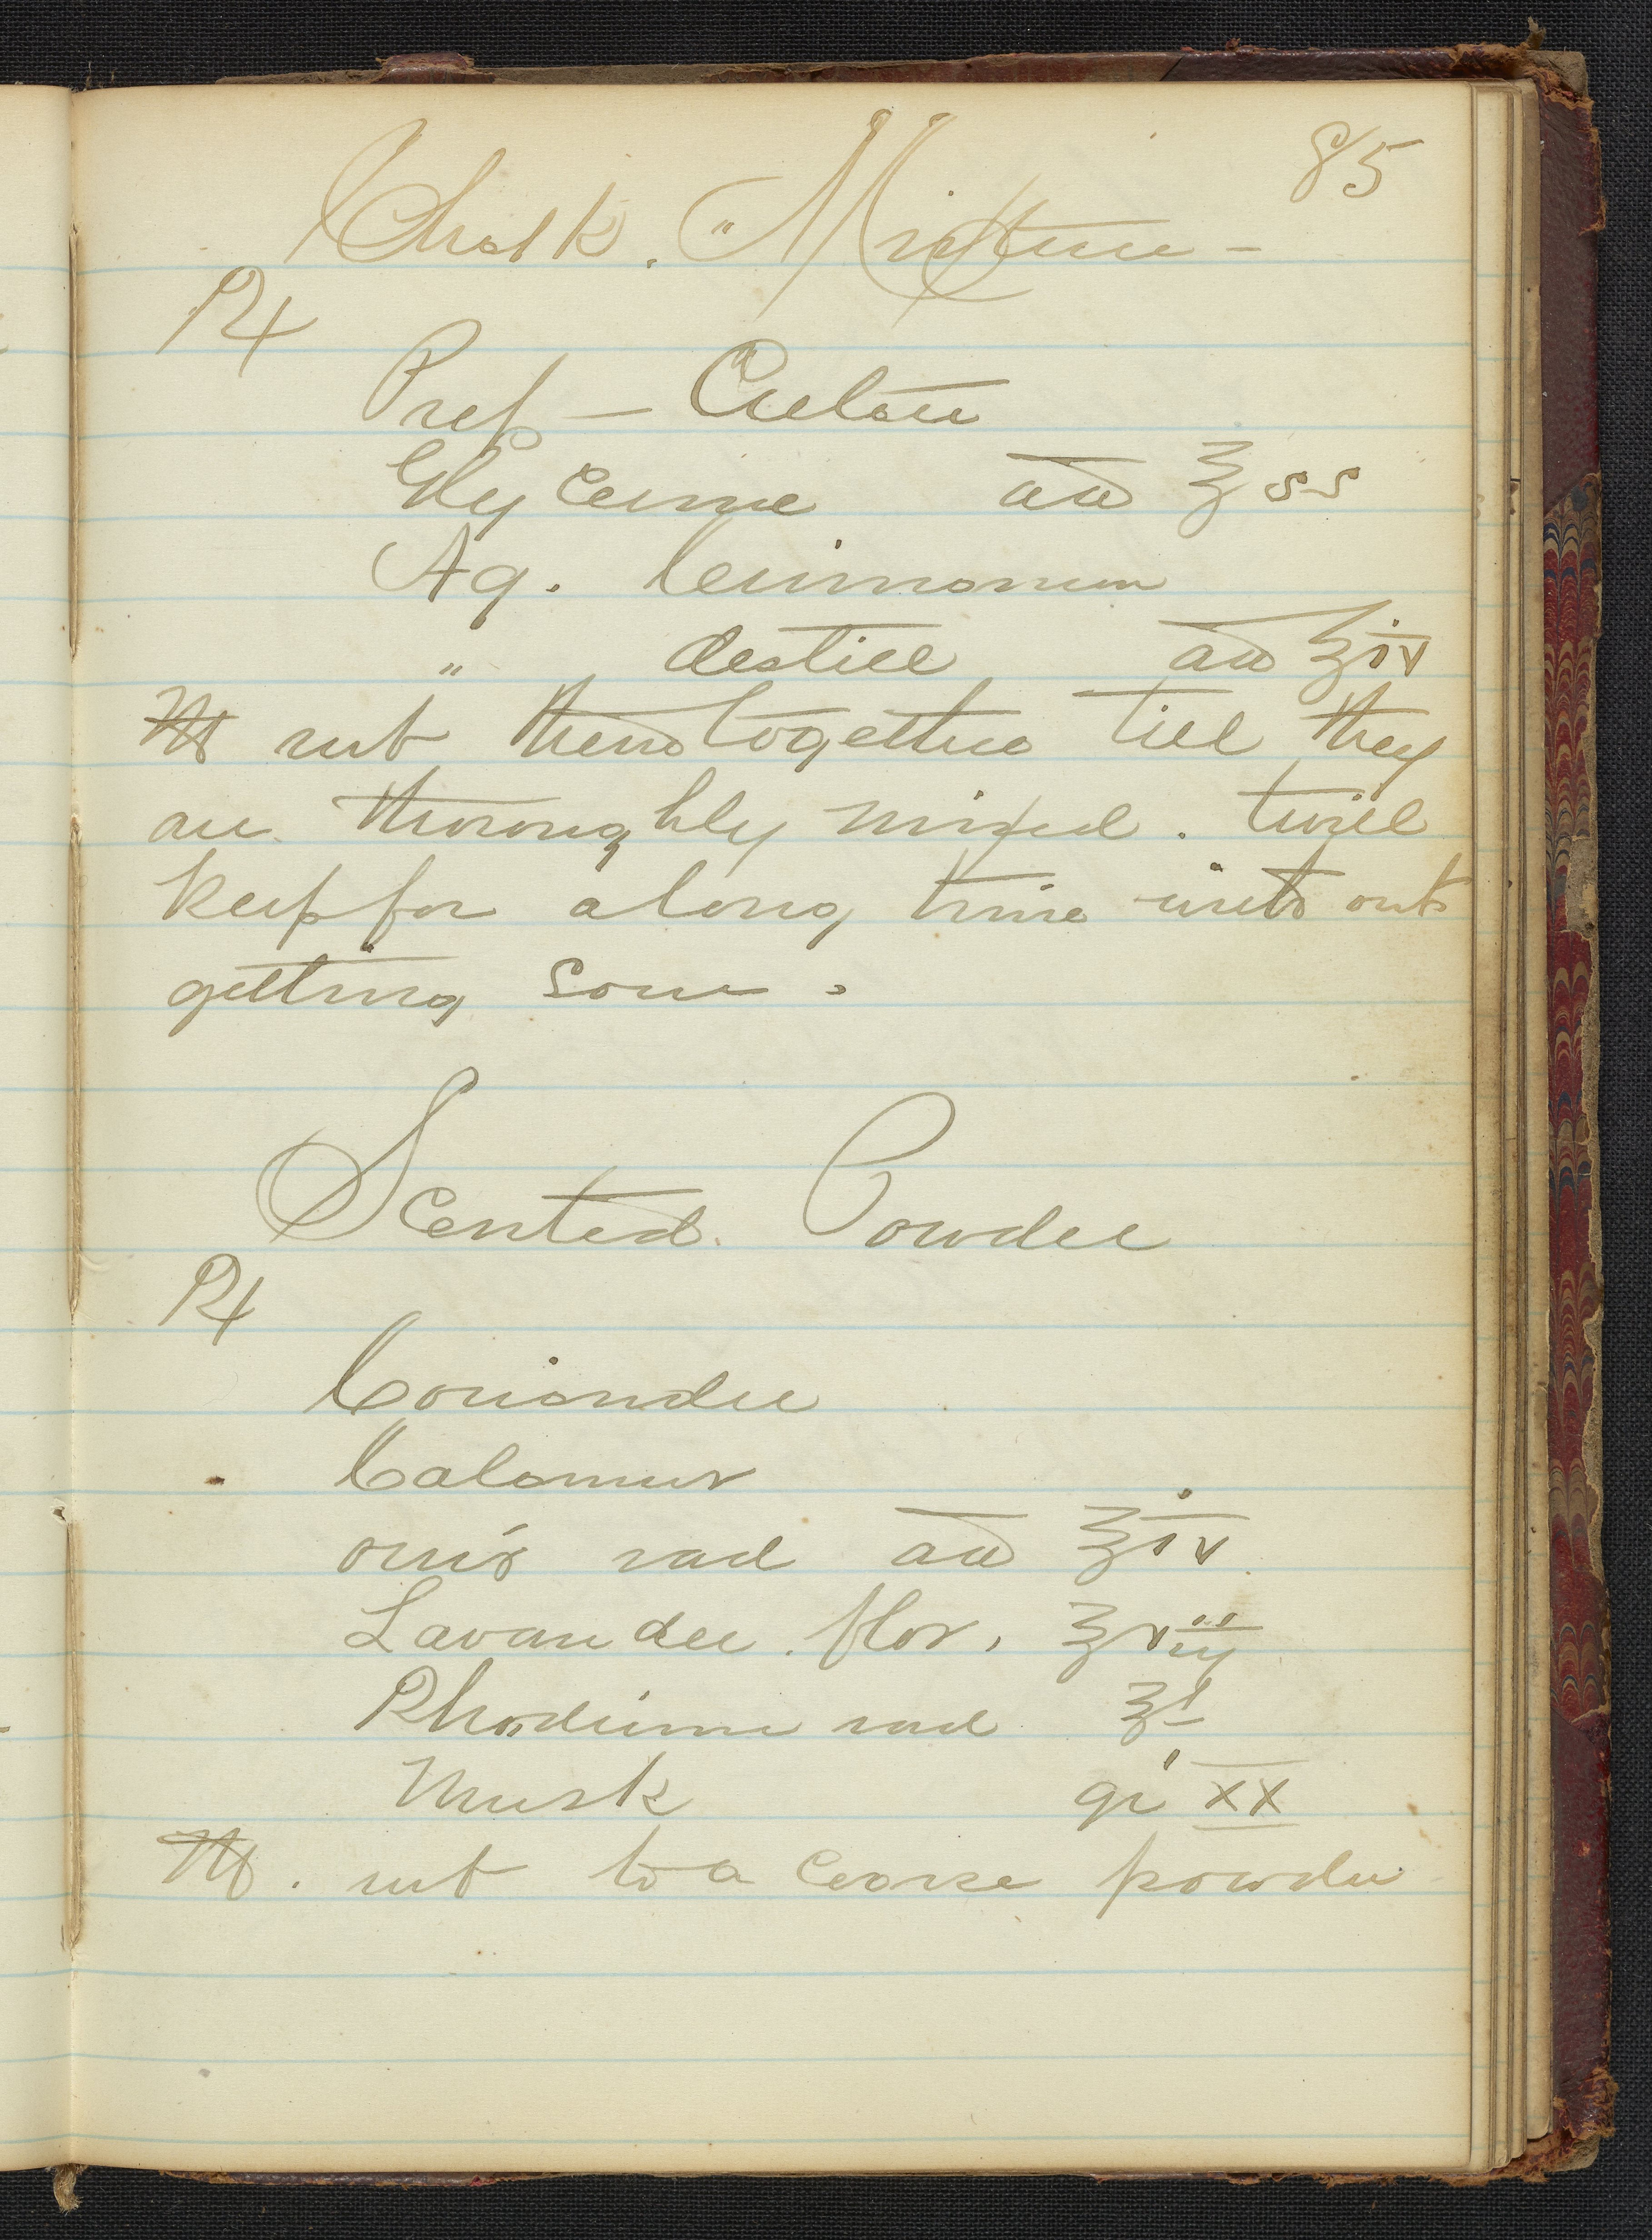 85
Chalk. Mixture -
℞
Prep - Cretae
Glycerine aa ℥ ss
Aq. Cinnamon
" destill aa ℥ iv
M rub them together till they
are thoroughly mixed. twill
keep for along time without
getting sour.
Scented Powder
℞
Coriander
Calamus
orris rad aa ℥ iv
Lavander. flor. ℥ viij
Rhodium rad ℥ i
Musk gr xx
M. rub to a coarse powder